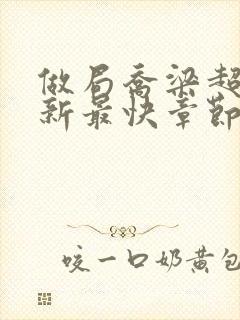 做局乔梁超
新最快章节
咬一口奶黄包